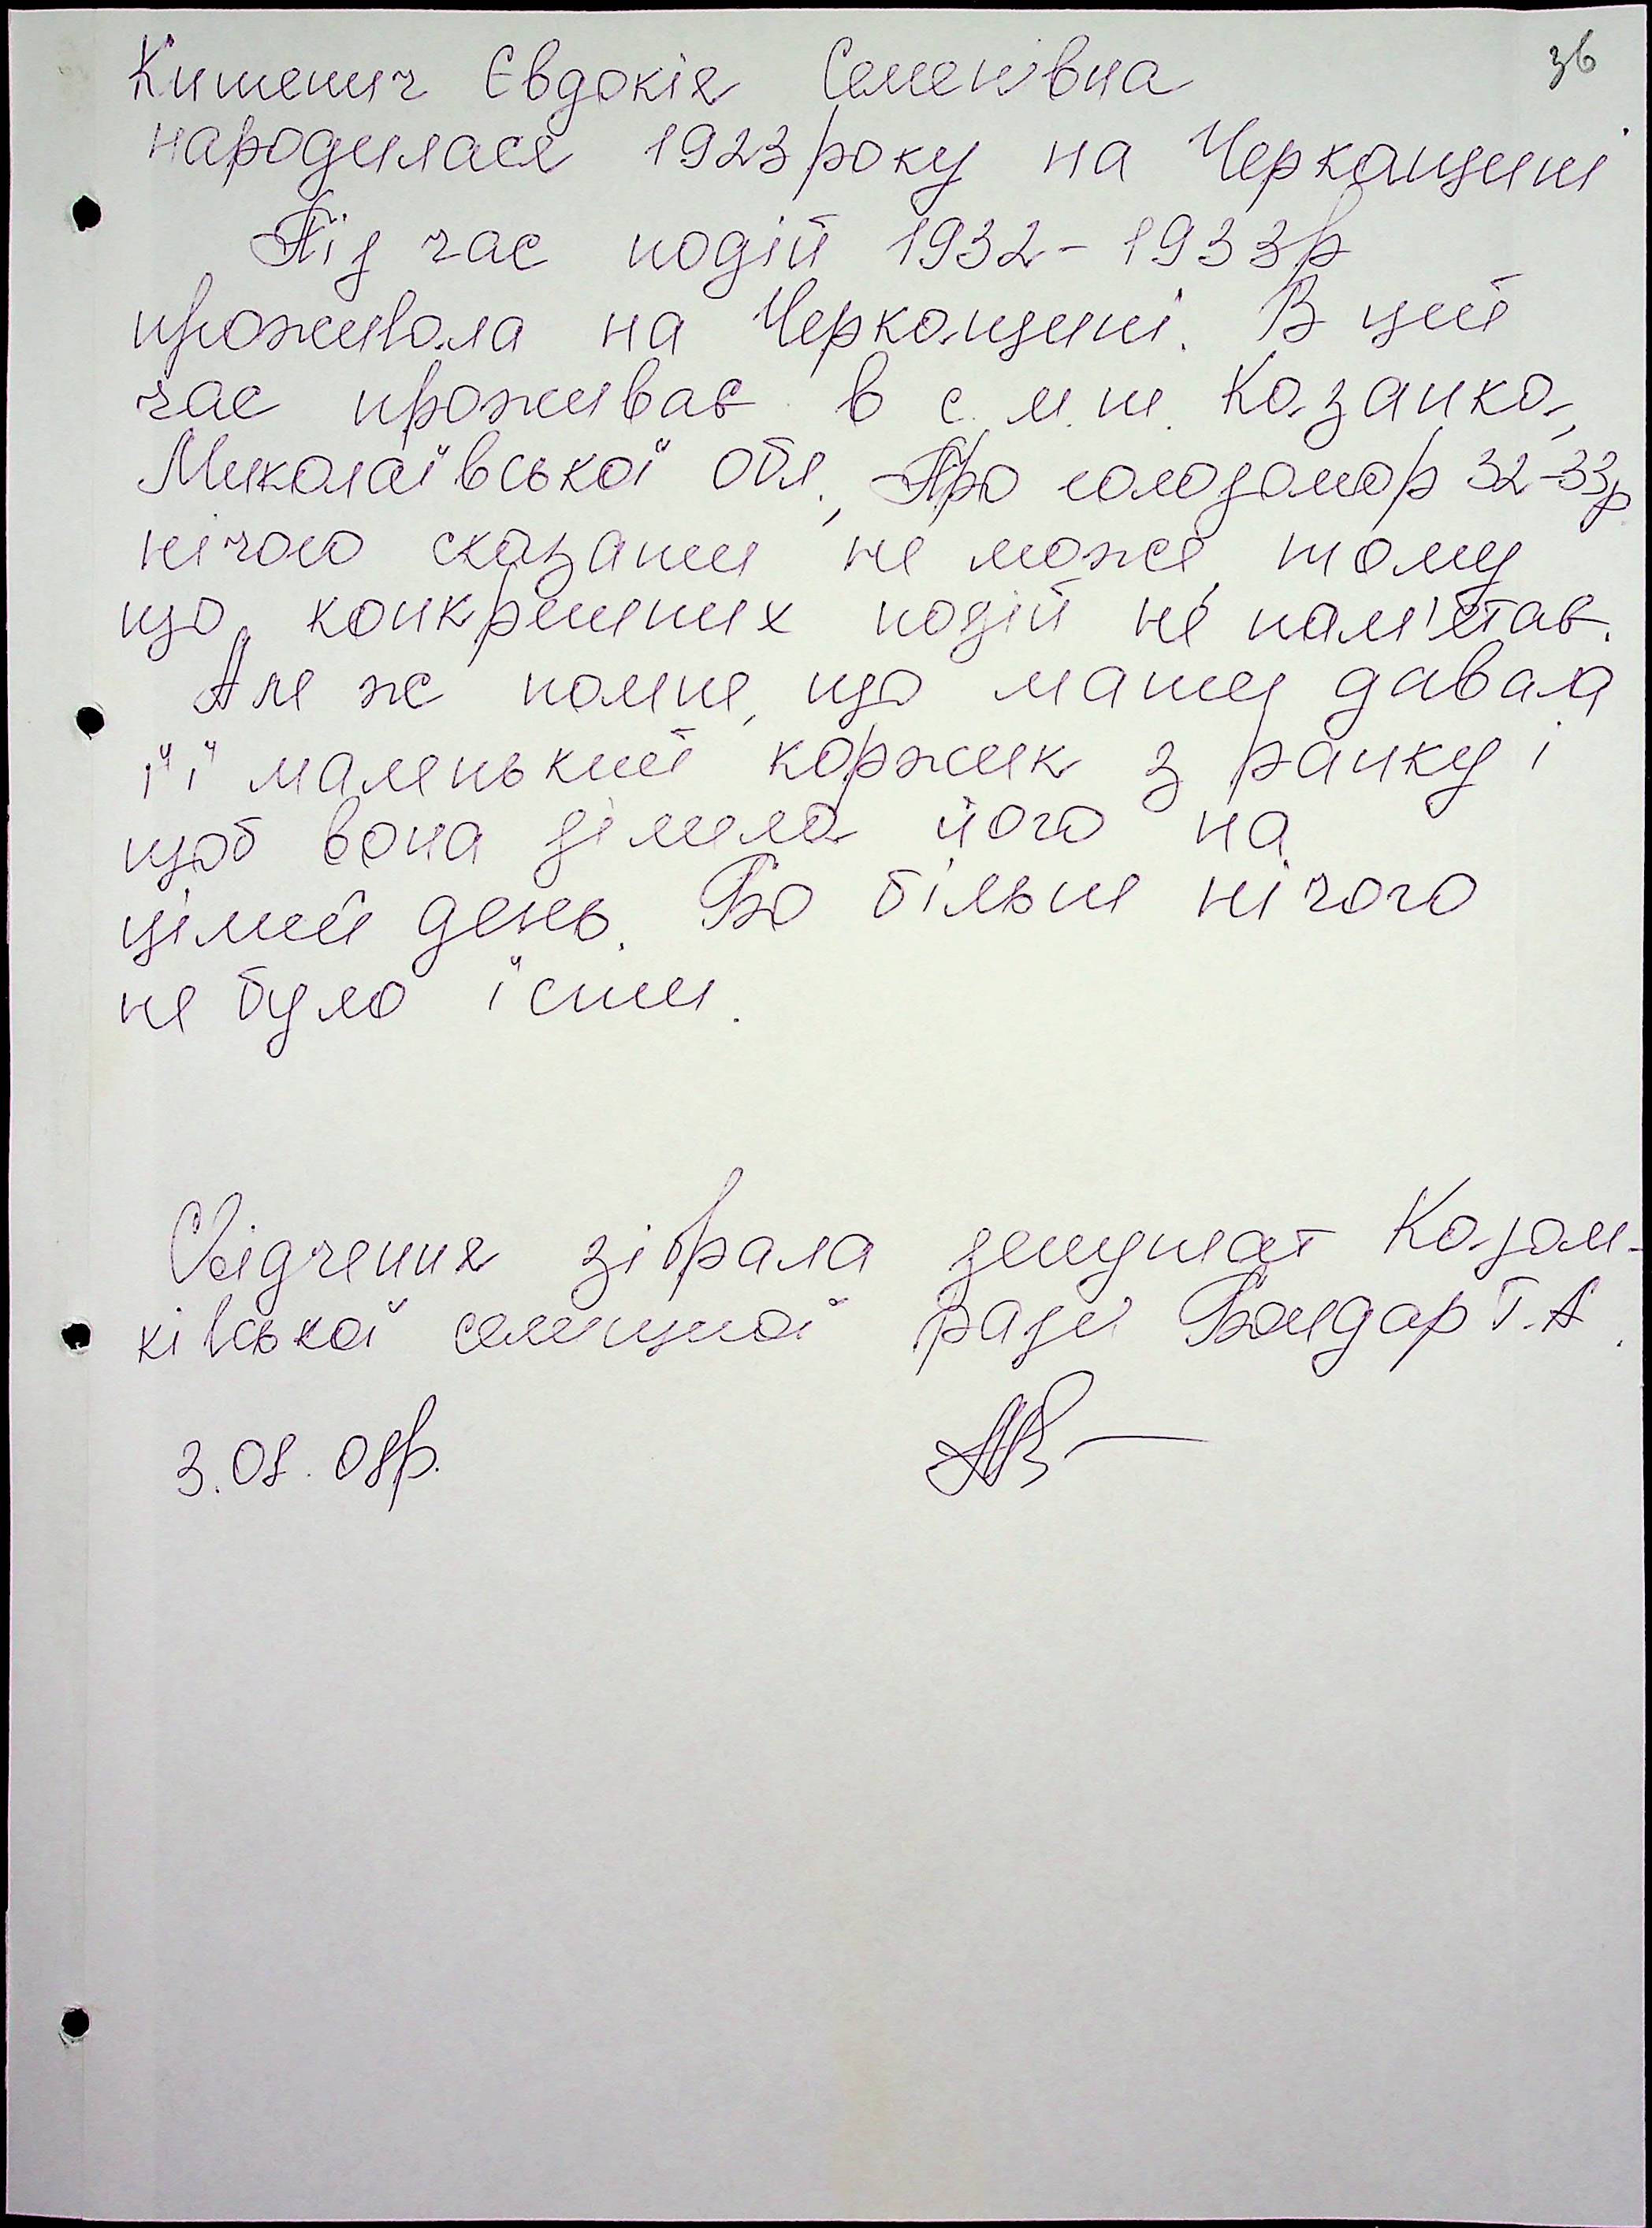 36
Кишенич Євдокія Семенівна
народилася 1923 року на Черкащині
Під час подій 1932-1933р
проживала на Черкащині. В цей
час проживає в с.м.т. Казанка,
Миколаївської обл., Про голодомор 32-33р
нічого сказати не може, тому
що конкретних подій не пам'ятає.
Але ж помне, що мати давала
її маленький коржик з ранку і
щоб вона ділила його на
цілий день. Бо більше нічого
не було їсти.
Свідчення зібрала депутат Казан-
ківської селищної ради Бондар Т.А.
3.08.08р.